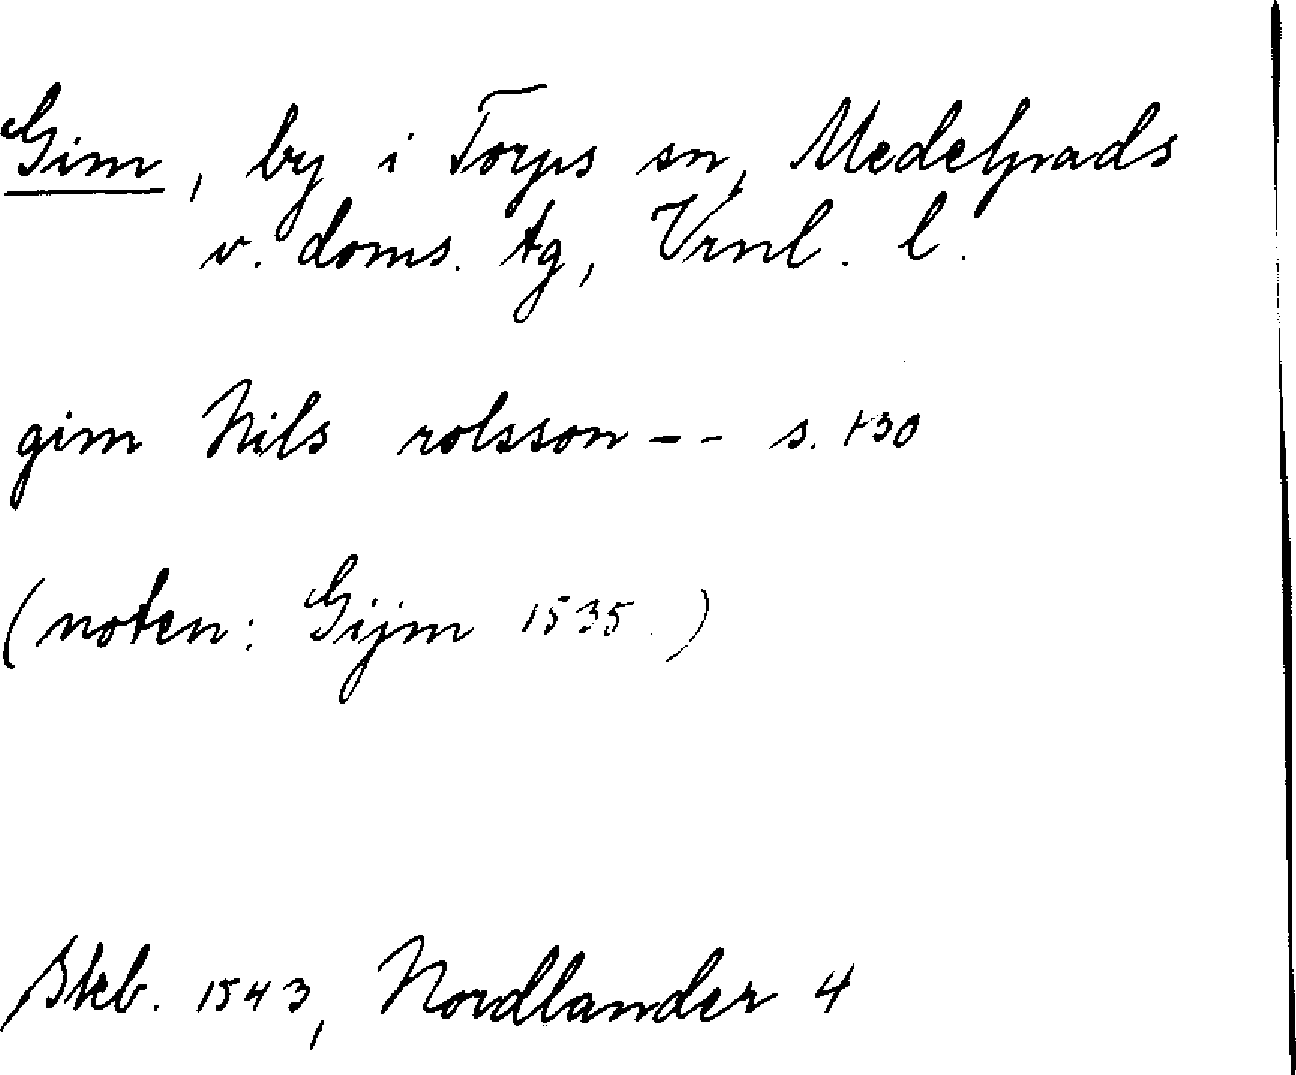 Gim, by i Torps sn, Medelpads
v. doms. tg, Vrnl. l.
gim Nils rolsson -- s. 130
(noten: Gijm 1535.)
Skb. 1543, Nordlander 4